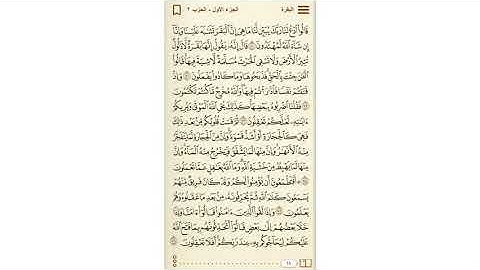 البقرة
الجزء الأول ، الحزب ٢
قالوا ادع لنا ربك يبين لنا ما هي إن البقر تشابه علينا وإنا
إن شاء الله لمهتدون ٧٠ قال إنه يقول إنها بقرة لا ذلول
تثير الأرض ولا تسقي الحرث مسلمة لا شية فيها قالوا
الآن جئت بالحق فذبحوها وما كادوا يفعلون ٧١ وإذ
قتلتم نفسا فادارأتم فيها والله مخرج ما كنتم تكتمون
٧٢ فقلنا اضربوه ببعضها كذلك يحي الله الموتى ويريكم
آياته لعلكم تعقلون ٧٣ ثم قست قلوبكم من بعد ذلك
فهي كالحجارة أو أشد قسوة وإن من الحجارة لما يتفجر
منه الأنهار وإن منها لما يشقق فيخرج منه الماء وإن
منها لما يهبط من خشية الله وما الله بغافل عما تعملون
٧٤ أفتطمعون أن يؤمنوا لكم وقد كان فريق منهم
يسمعون كلام الله ثم يحرفونه من بعد ما عقلوه وهم
يعلمون ٧٥ وإذا لقوا الذين آمنوا قالوا آمنا وإذا
خلا بعضهم إلى بعض قالوا أتحدثونهم بما فتح الله
عليكم ليحاجوكم به عند ربكم أفلا تعقلون ٧٦
١١